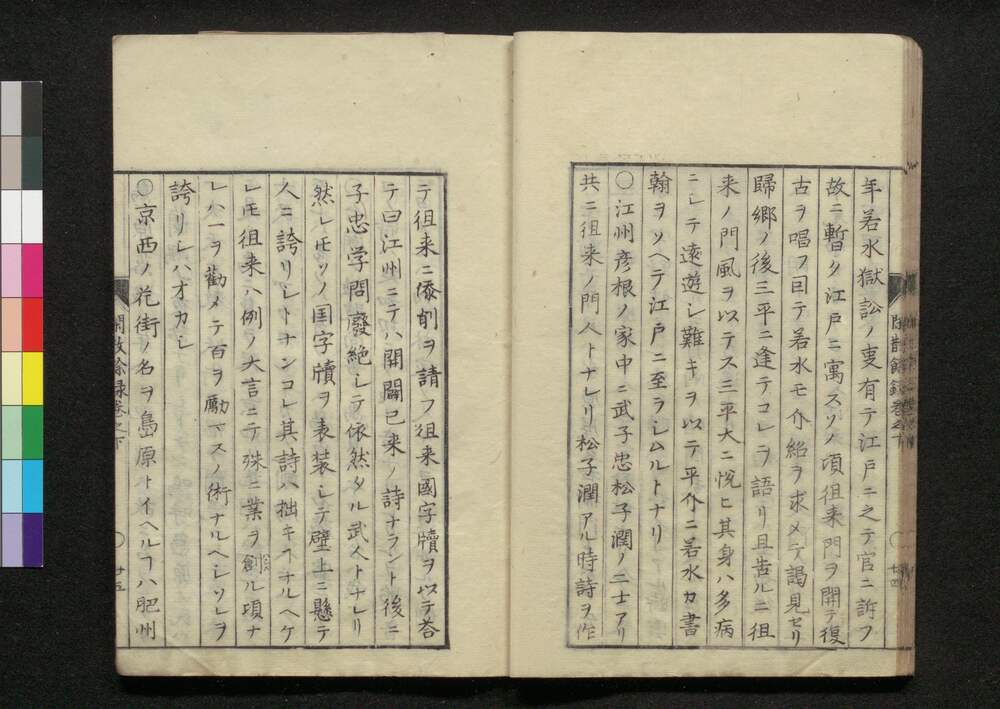 年若水獄訟ノ叓有テ江戸ニ之テ官ニ訴フ
故ニ暫ク江戸ニ寓スソノ項徂来門ヲ開テ復
古ヲ唱フ因テ若水モ介紹ヲ求メテ謁見セリ
歸郷ノ後三平ニ逢テコレヲ語リ且告ルニ徂
来ノ門風ヲ以テス三平大ニ悦ヒ其身ハ多病
ニシテ遠遊シ難キヲ以テ平介ニ若水カ書
翰ヲソヘテ江戸ニ至ラシムルトナリ
〇江州彦根ノ家中ニ武子忠松子潤ノ二士アリ
共ニ徂来ノ門人トナレリ松子潤アル時詩ヲ作
テ徂来ニ添削ヲ請フ徂来國字牘ヲ以テ荅
テ曰江州ニテハ開闢已来ノ詩ナラント後ニ
子忠学問廢絶シテ依然タル武人トナレリ
然レモソノ国字牘ヲ表装シテ壁上ニ懸テ
人ニ誇リシトナンコレ其詩ハ拙キヿナルヘケ
レモ徂来ハ例ノ大言ニテ殊ニ業ヲ創ル項ナ
レハ一ヲ勸メテ百ヲ勵マスノ術ナルヘシソレヲ
誇リシハオカシ
〇京西ノ花街ノ名ヲ島原トイヘルヿハ肥州
閑散餘録巻之下
〇
廿五